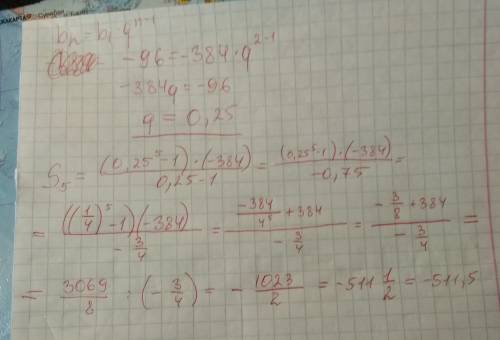 bₙ = b₁ · qⁿ⁻¹
-96 = -384 · q²⁻¹
-384q = -96
q = 0,25
S₅ = ((0,25⁵-1) · (-384))/(0,25-1) = ((0,25⁵-1) · (-384))/(-0,75) =
= (((1/4)⁵-1)(-384))/(-3/4) = (-384/4⁵ + 384)/(-3/4) = (-3/8 + 384)/(-3/4) =
= 3069/8 : (-3/4) = -1023/2 = -511 1/2 = -511,5